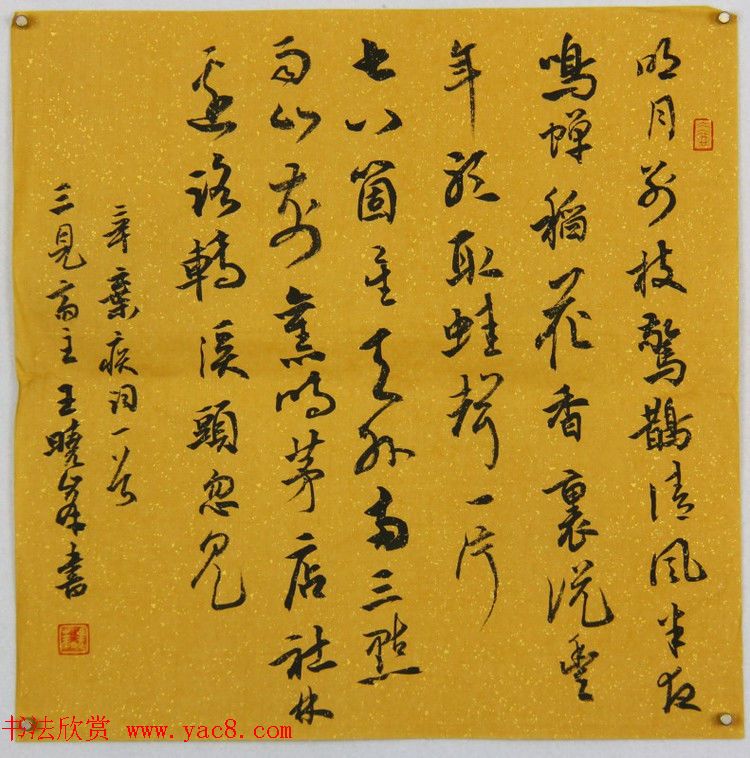 明月别枝驚鵲清風半夜
鳴蝉稻花香裏説豐
年聽取蛙聲一片
七八箇星天外兩三點
雨山前舊時茅店社林
邊路轉溪頭忽見
辛棄疾詞一首
三見齋主王曉峰書
书法欣赏 www.yac8.com